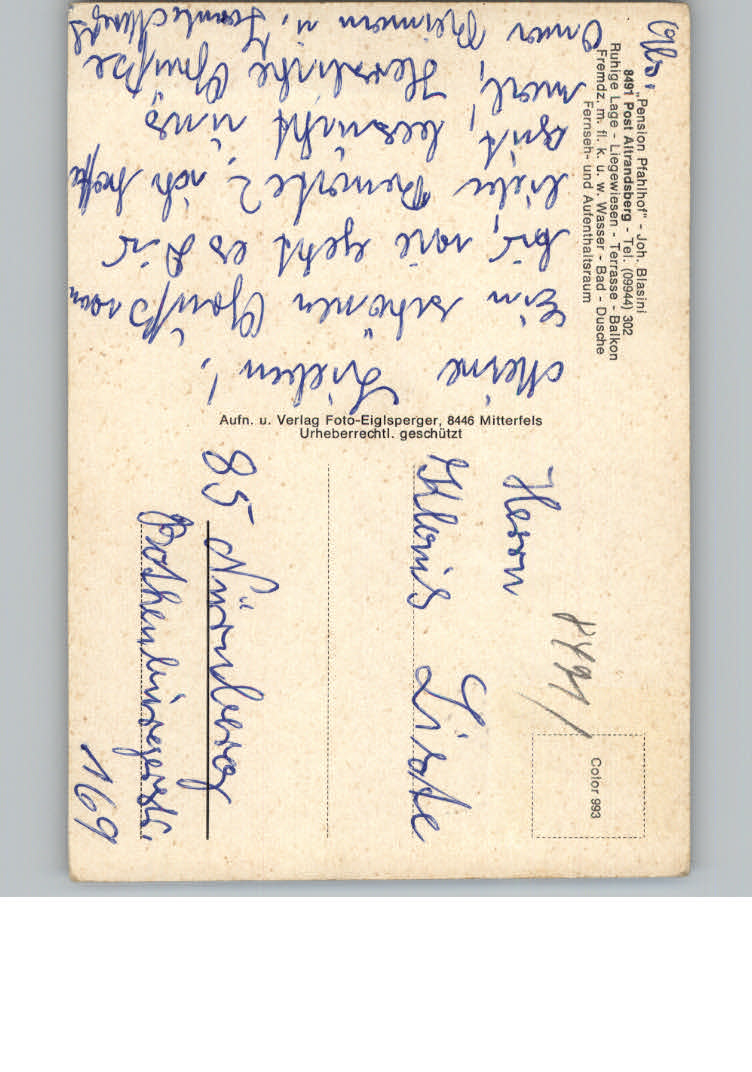 „Pension Pfahlhof" - Joh. Blasini
8491 Post Altrandsberg - Tel. (09944) 302
Ruhige Lage - Liegewiesen - Terrasse - Balkon
Fremdz. m. fl. k. u. w. Wasser - Bad - Dusche
Fernseh- und Aufenthaltsraum
Meine Lieben!
Ein schönen Gruß von
hir, wie geht es Dir
liebe Renate? ich hoffe
gut, besucht uns
mal, Herzliche Grüße
u.
Aufn. u. Verlag Foto-Eiglsperger, 8446 Mitterfels
Urheberrechtl. geschützt
Color 993
8491/
Herrn
Klaus Liste
85 Nürnberg
Rothenburgerstr.
169